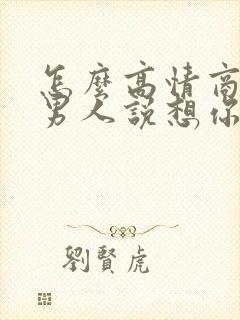 怎麼高情商
男人說想你
劉賢虎